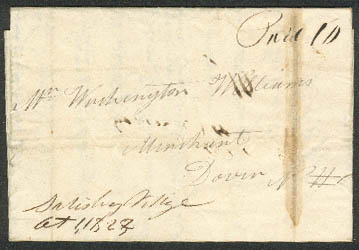 Paid 10
Mr Washington Williams
Merchant
Dover N H
Salisbury Village
Oct 1, 1823